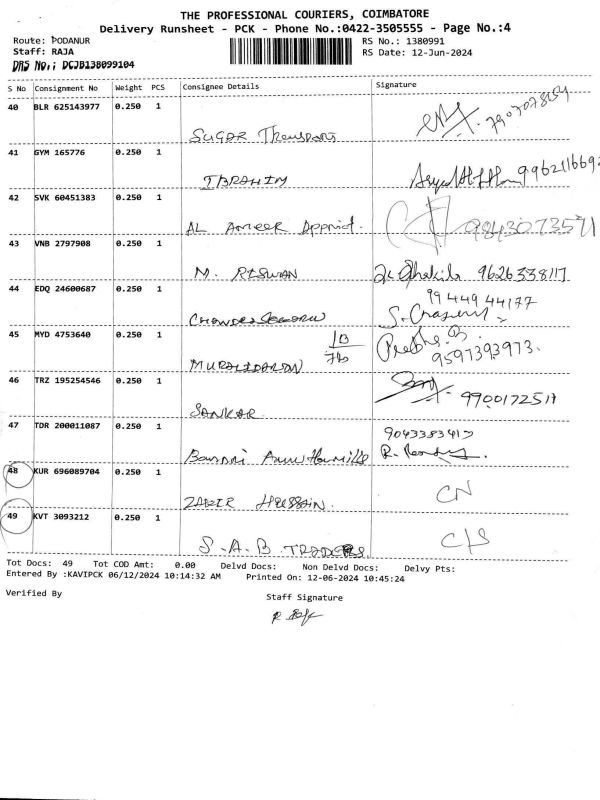 THE PROFESSIONAL COURIERS, COIMBATORE
Delivery Runsheet - PCK - Phone No.:0422-3505555 - Page No.:4
Route: PODANUR
RS No.: 1380991
Staff: RAJA
RS Date: 12-Jun-2024
DRS No.: DCJB138099104
S No Consignment No Weight PCS Consignee Details Signature
40 BLR 625143977 0.250 1
SUGAR Transport 7907078154
41 GYM 165776 0.250 1
IBRAHIM 9962116692
42 SVK 60451383 0.250 1
AL Ameer 9843073571
43 VNB 2797908 0.250 1
M. RISWAN 9626338117
44 EDQ 24600687 0.250 1
99449 44177
45 MYD 4753640 0.250 1
MURALIDARAN 9597393973.
46 TRZ 195254546 0.250 1
SANKAR 9700172511
47 TDR 200011087 0.250 1
9043383417
48 KUR 696089704 0.250 1
ZAKIR HUSSAIN. CN
49 KVT 3093212 0.250 1
S.A.B TRADERS. C/S
Tot Docs: 49 Tot COD Amt: 0.00 Delvd Docs: Non Delvd Docs: Delvy Pts:
Entered By :KAVIPCK 06/12/2024 10:14:32 AM Printed On: 12-06-2024 10:45:24
Verified By
Staff Signature